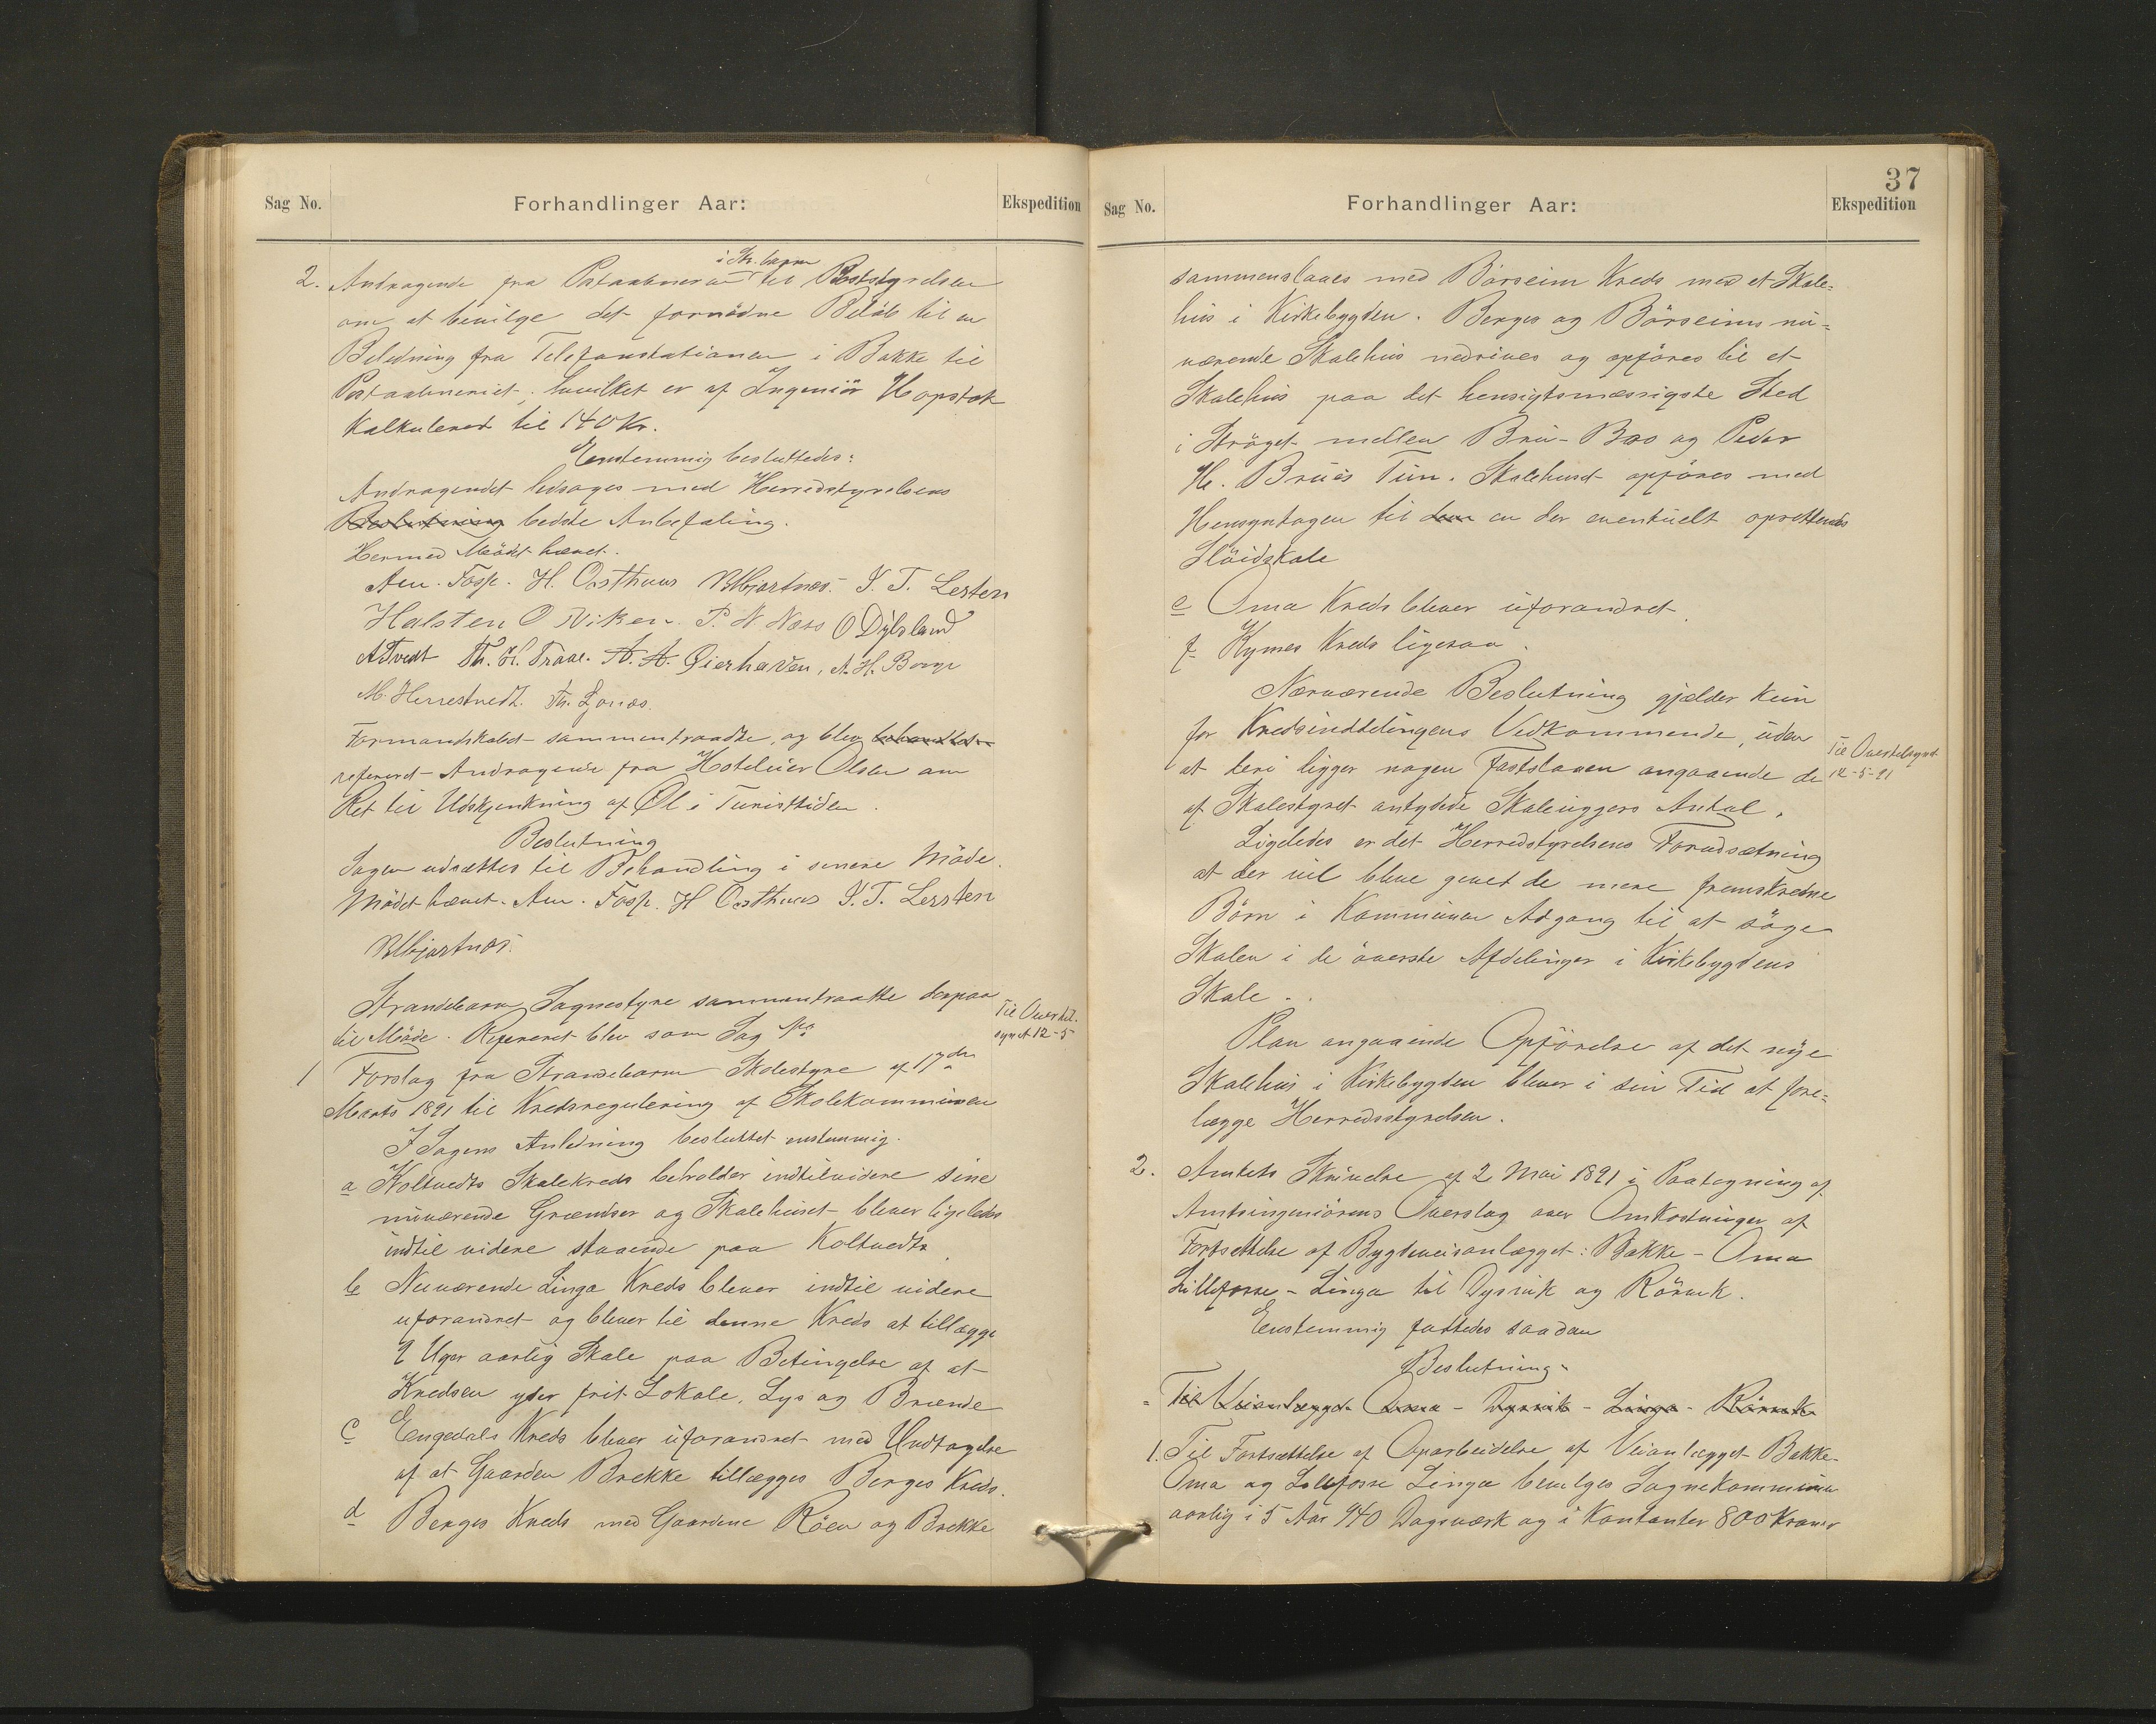 Sag No. Forhandlinger Aar: Ekspedition
i Str.barm
2. Andragende fra Postaabneren til Poststyrelsen
om at bevilge det fornödne Belöb til en
Beledning fra Telefonstationen i Bakke til
Postaabneriet, hvilket er af Ingeniör Hopstok
kalkuleret til 140 Kr.
Enstemmig besluttedes:
Andragendet ledsages med Herredstyrelsens
Beslutning bedste Anbefaling.
Hermed Mödet hævet.
Am. Fosse. H. Oosthuus J. T. Lersten
Halsten O Viken. P. N. Næss O Dÿbsland
A Tvedt Th. H. Traae. A. A. Øierhaven, A. H. Berge
M. Herrestvedt. Th. Ljonæs.
Formandskabet sammentraadte, og blev behandlet
refereret Andragende fra Hotelier Olsen om
Ret til Udskjenkning af Øl i Turisttiden.
Beslutning
Sagen udsættes til Behandling i senere Möde.
Mödet hævet. Am. Fosse. H Oosthuus J. T. Lersten
Strandebarm Sognestyre sammentraatte derpaa
til Möde. Refereret blev som Sag No
Til Overtil-
synet 12-5
1 Forslag fra Strandebarm Skolestyre af 17de
Marts 1891 til Kredsregulering af Skolekommunen
I Sagens Anledning besluttet enstemmig.
a Koltvedts Skolekreds beholder indtilvidere sine
nuværende Grændser og Skolehuset bliver ligeledes
indtil videre staaende paa Koltvedt.
b Nuværende Linga Kreds bliver indtil videre
uforandret og bliver til denne Kreds at tillægge
2 Uger aarlig Skole paa Betingelse af at
Kredsen yder frit Lokale, Lys og Brænde
c Engedals Kreds bliver uforandret med Undtagelse
af at Gaarden Brekke tillægges Berges Kreds.
d Berges Kreds med Gaardene Röen og Brekke
37
Sag No. Forhandlinger Aar: Ekspedition
sammenslaaes med Börseim Kreds med et Skole-
hus i Kirkebygden. Berges og Börseims nu-
værende Skolehus nedrives og opföres til et
Skolehus paa det hensigtsmæssigste Sted
i Ströget mellem Bru-Bro og Peder
H. Brues Tun. Skolehuset opföres med
Hensyntagen til dem en der eventuelt oprettendes
Slöidskole
e Oma Kreds bliver uforandret.
f Kymes Kreds ligesaa.
Nærværende Beslutning gjælder kun
for Kredsinddelingens Vedkommende, uden
at heri ligger nogen Fastslaaen angaaende de
Til Overtilsynet
12-5-91
af Skolestyret antydede Skoleugers Antal.
Ligeledes er det Herredstyrelsens Forudsætning
at der vil blive givet de mere fremskredne
Börn i Kommunen Adgang til at söge
Skolen i de överste Afdelinger i Kirkebygdens
Skole.
Plan angaaende Opförelse af det nye
Skolehus i Kirkebygden bliver i sin Tid at fore-
lægge Herredsstyrelsen.
2. Amtets Skrivelse af 2 Mai 1891 i Paategning af
Amtsingeniörens Överslag over Omkostninger af
Fortsettelse af Bygdeveisanlægget: Bakke - Oma
Lillefosse - Linga til Dysvik og Rörvik.
Enstemmig fattedes saadan
Beslutning.
Til Veianlægget Oma - Dysvik - Linga - Rörvik
1. Til Fortsættelse af Oparbeidelse af Veianlægget Bakke-
Oma og Lillefosse Linga bevilges Sognekommunen
aarlig i 5 Aar 440 Dagsværk og i Kontanter 800 Kroner